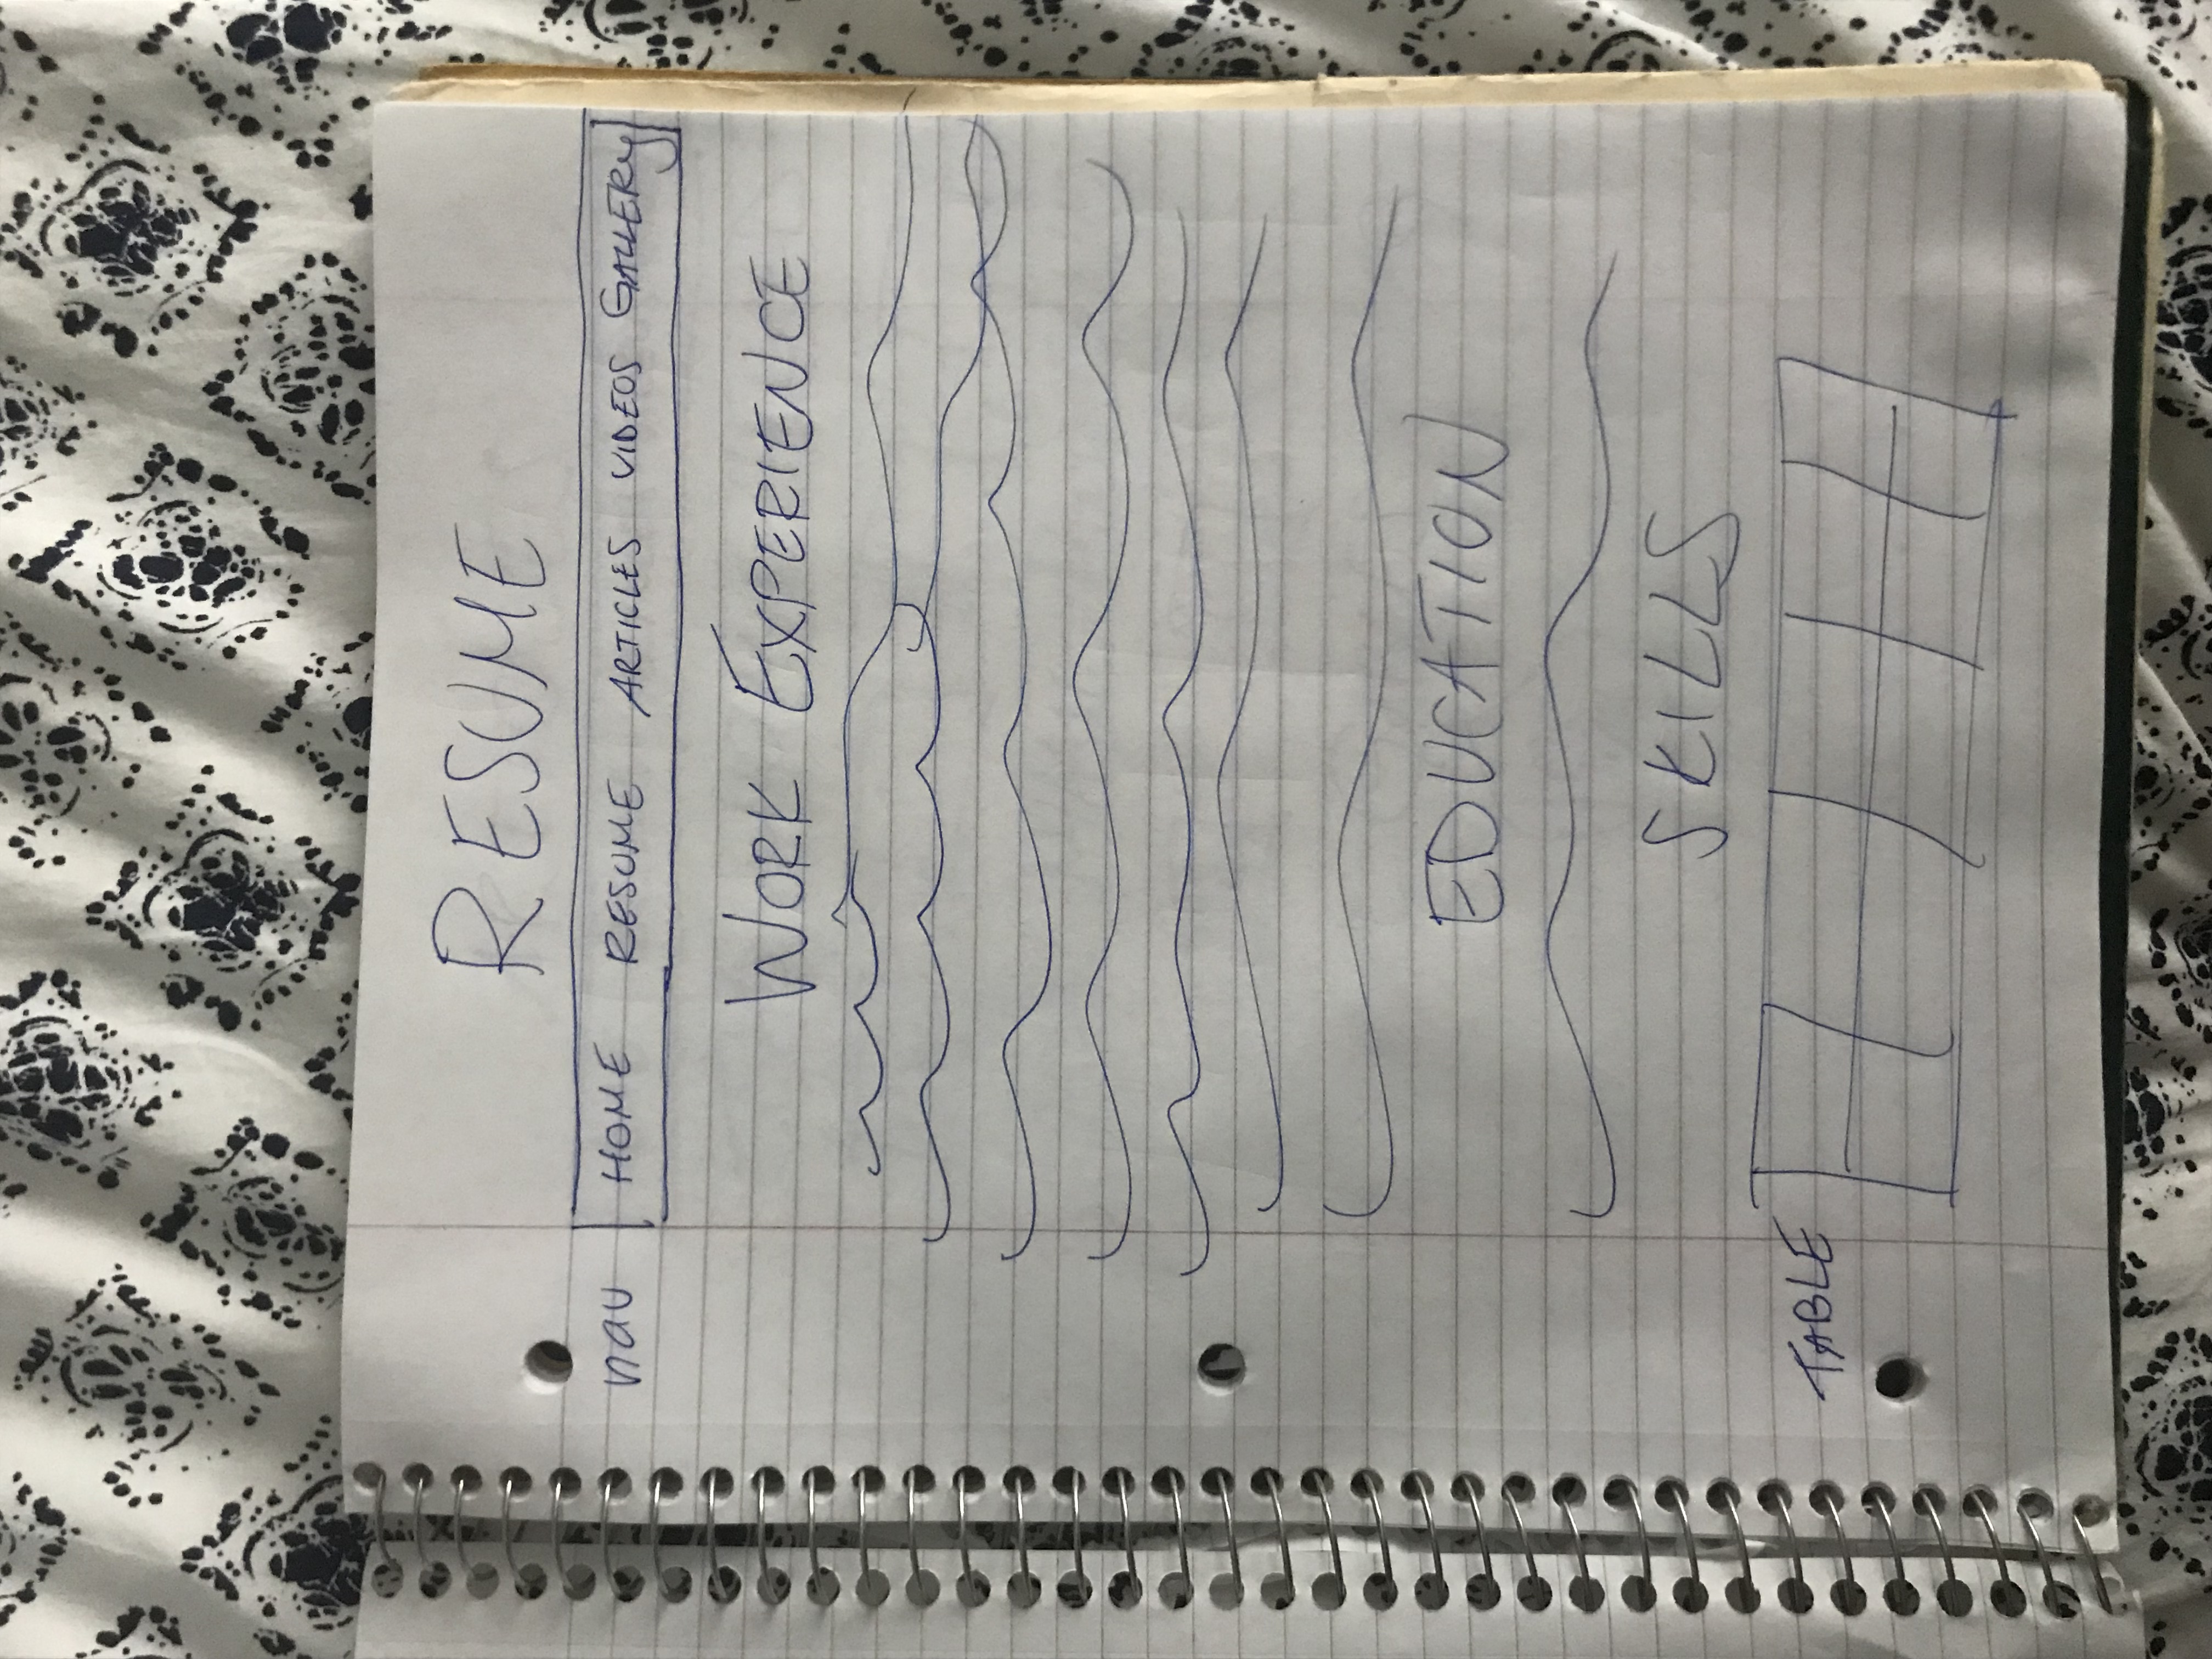 RESUME
nav HOME RESUME ARTICLES VIDEOS GALLERY
WORK EXPERIENCE
EDUCATION
SKILLS
TABLE